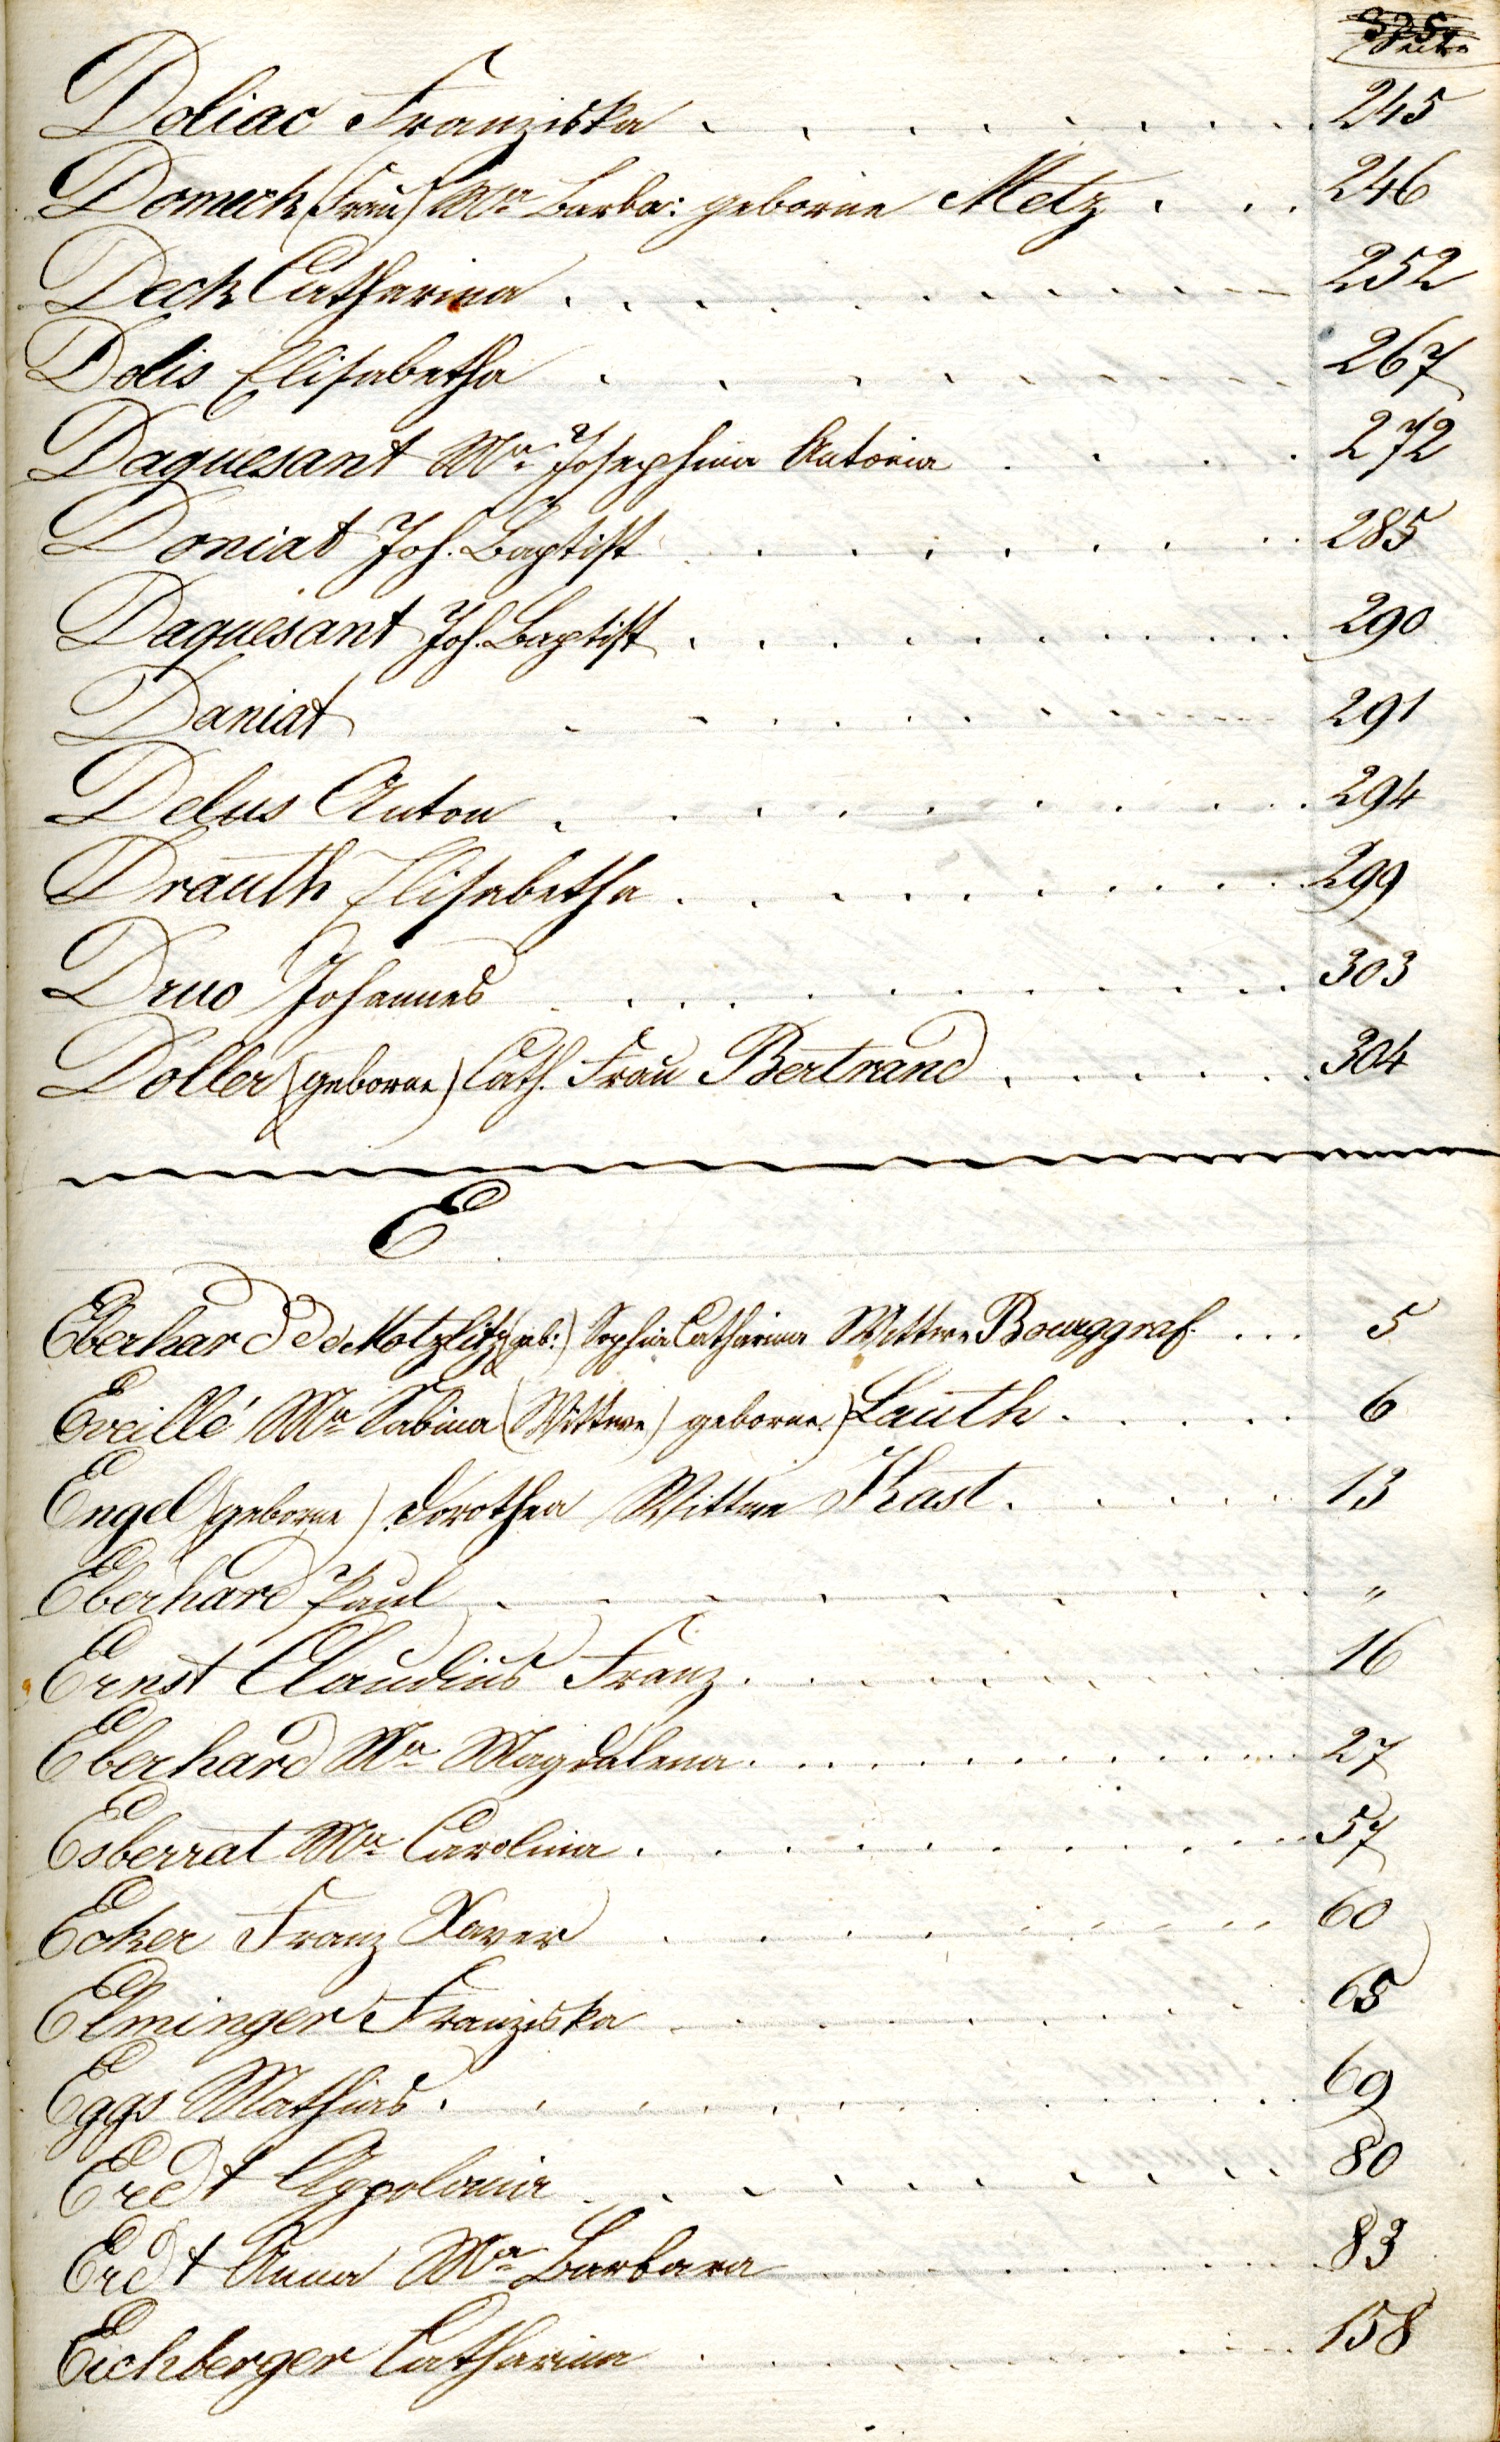 Seite
Doliac Franziska . . . . . . . . . 245
Domeck (Frau) Mª Barba: geborne Metz . . . 246
Deck Catharina . . . . . . . . . . 252
Dolis Elisabetha . . . . . . . . . . 267
Daquesant Mª Josephina Antonia . . . . 272
Doniat Joh. Baptist . . . . . . . . 285
Daquesant Joh. Baptist . . . . . . . . . . 290
Daniat . . . . . . . . . . 291
Delus Anton . . . . . . . . . . 294
Drauth Elisabetha . . . . . . . . . 299
Druo Johannes . . . . . . . . . . 303
Doller (geborne) Cath. Frau Bertrand . . . . . . 304
E
Eberhard de Motzlitz (geb:) Sophia Catharina Wittwe Bourggraf. . . . 5
Eveillé Mª Sabina (Wittwe) geborne) Lauth . . . . . 6
Engel (geborne) Dorothea Wittwe Kast . . . . . 13
Eberhard Paul . . . . . . . . . . "
Ernst Claudius Franz . . . . . . . . . 16
Eberhard Mª Magdalena . . . . . . . . . . 27
Esberrat Mª Carolina . . . . . . . . . . 57
Ecker Franz Xaver . . . . . . . . . 60
Elminger Franziska . . . . . . . . . 65
Eggs Mathias . . . . . . . . . . 69
Erdt Appolonia . . . . . . . . . 80
Erdt Anna Mª Barbara . . . . . . . . 83
Eichberger Catharina . . . . . . . . . 158